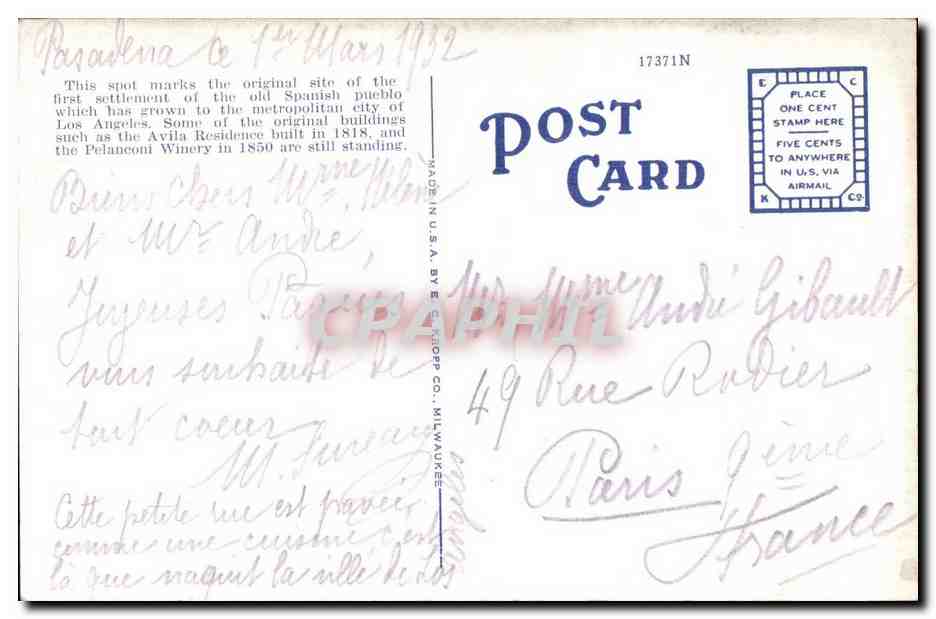 Pasadena ce 1er Mars 1932
This spot marks the original site of the
first settlement of the old Spanish pueblo
which has grown to the metropolitan city of
Los Angeles. Some of the original buildings
such as the Avila Residence built in 1818, and
the Pelanconi Winery in 1850 are still standing.
Biens Chers Mme
et Mr André,
Joyeuses Pâques
vous souhaite de
tout coeur
M.
Cette petite rue est pavée
comme une cuisine c'est
là que naquit la ville de Los
Angeles
MADE IN U.S.A. BY E. C. KROPP CO., MILWAUKEE
17371N
POST
CARD
E C
PLACE
ONE CENT
STAMP HERE
FIVE CENTS
TO ANYWHERE
IN U.S. VIA
AIRMAIL
K Co.
Mr. Mme André Gibault
49 Rue Rodier
Paris 9ème
France
CPAPHIL